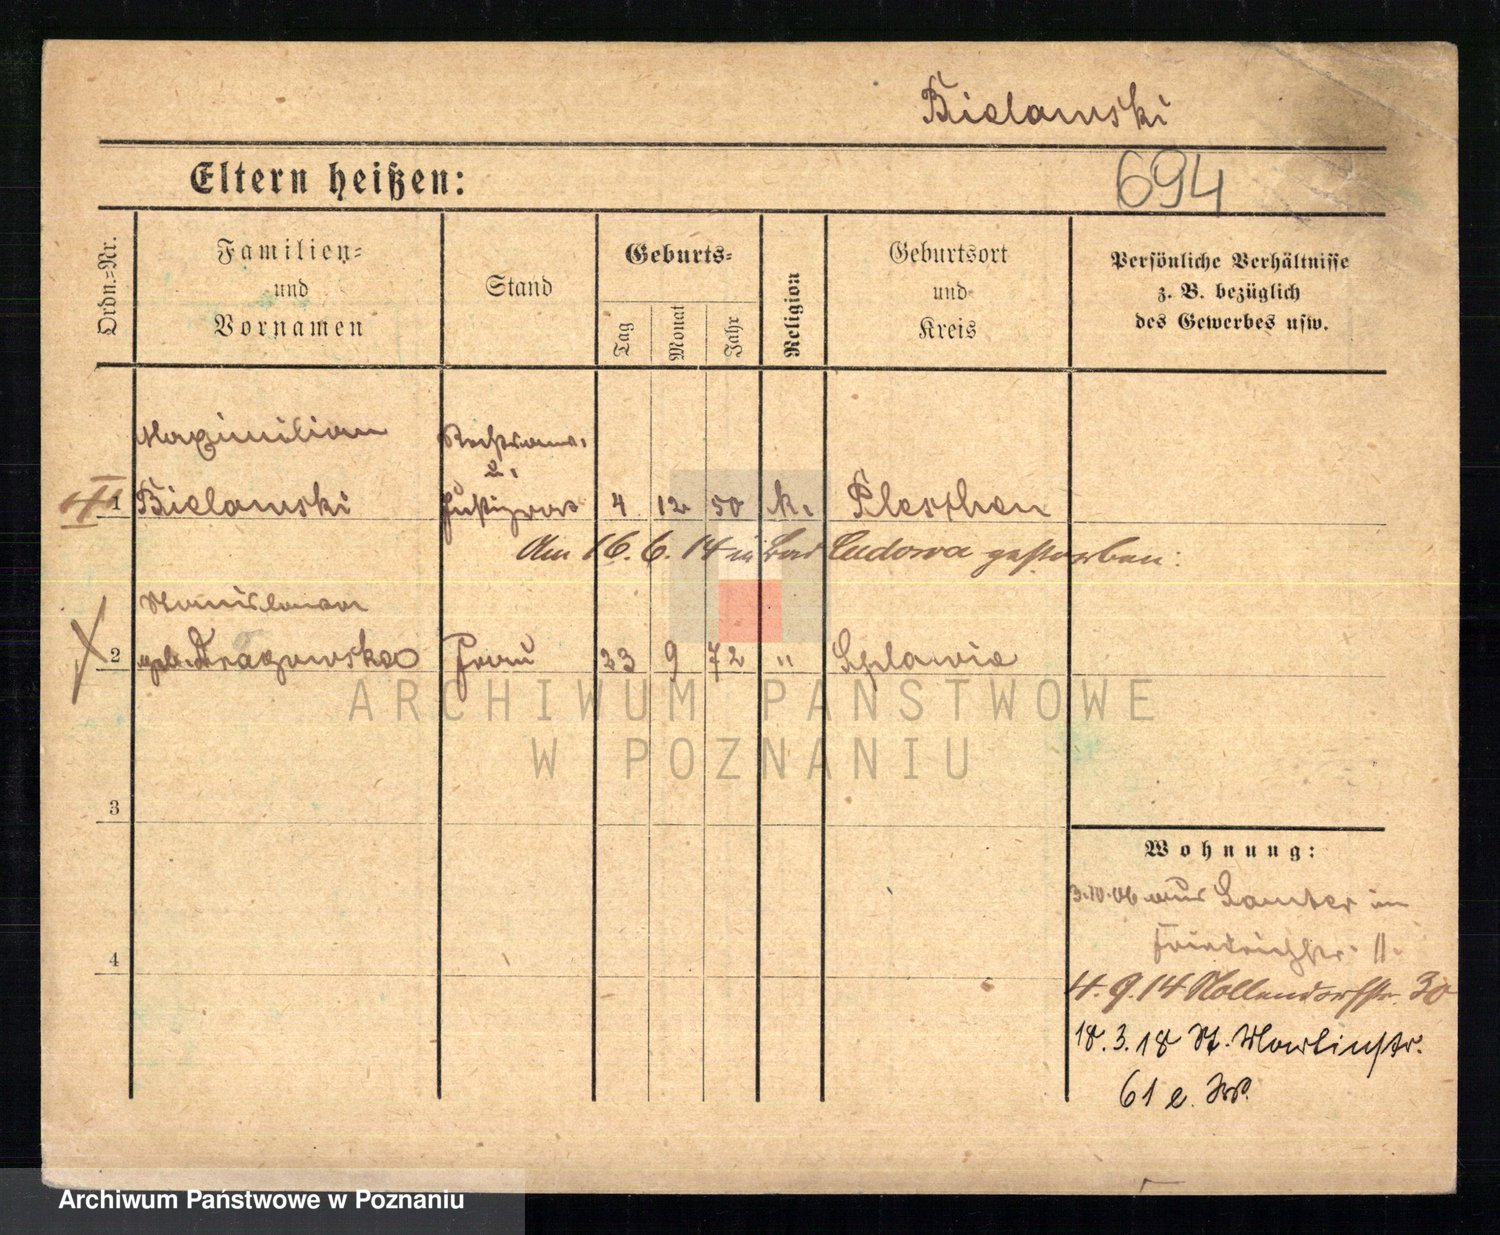 Bielawski
694
Eltern heißen:
Ordn.=Nr.
Familien=
und
Vornamen
Stand
Geburts=
Tag
Monat
Jahr
Religion
Geburtsort
und
Kreis
Persönliche Verhältnisse
z. B. bezüglich
des Gewerbes usw.
Maximilian
Rechtsanw.
u.
1 Bielawski Justizrat 4 12 50 k. Pleschen
Am 16. 6. 14 in Bad Cudowa gestorben.
Stanislawa
2 geb. Frau 23 9 72 " Splawie
3
4
Wohnung:
3.10.06 aus im
Friedrichstr. 11.
4. 9. 14 Nollendorfstr. 30
18. 3. 18 St. Martinstr.
61 e.
ARCHIWUM PAŃSTWOWE
W POZNANIU
Archiwum Państwowe w Poznaniu